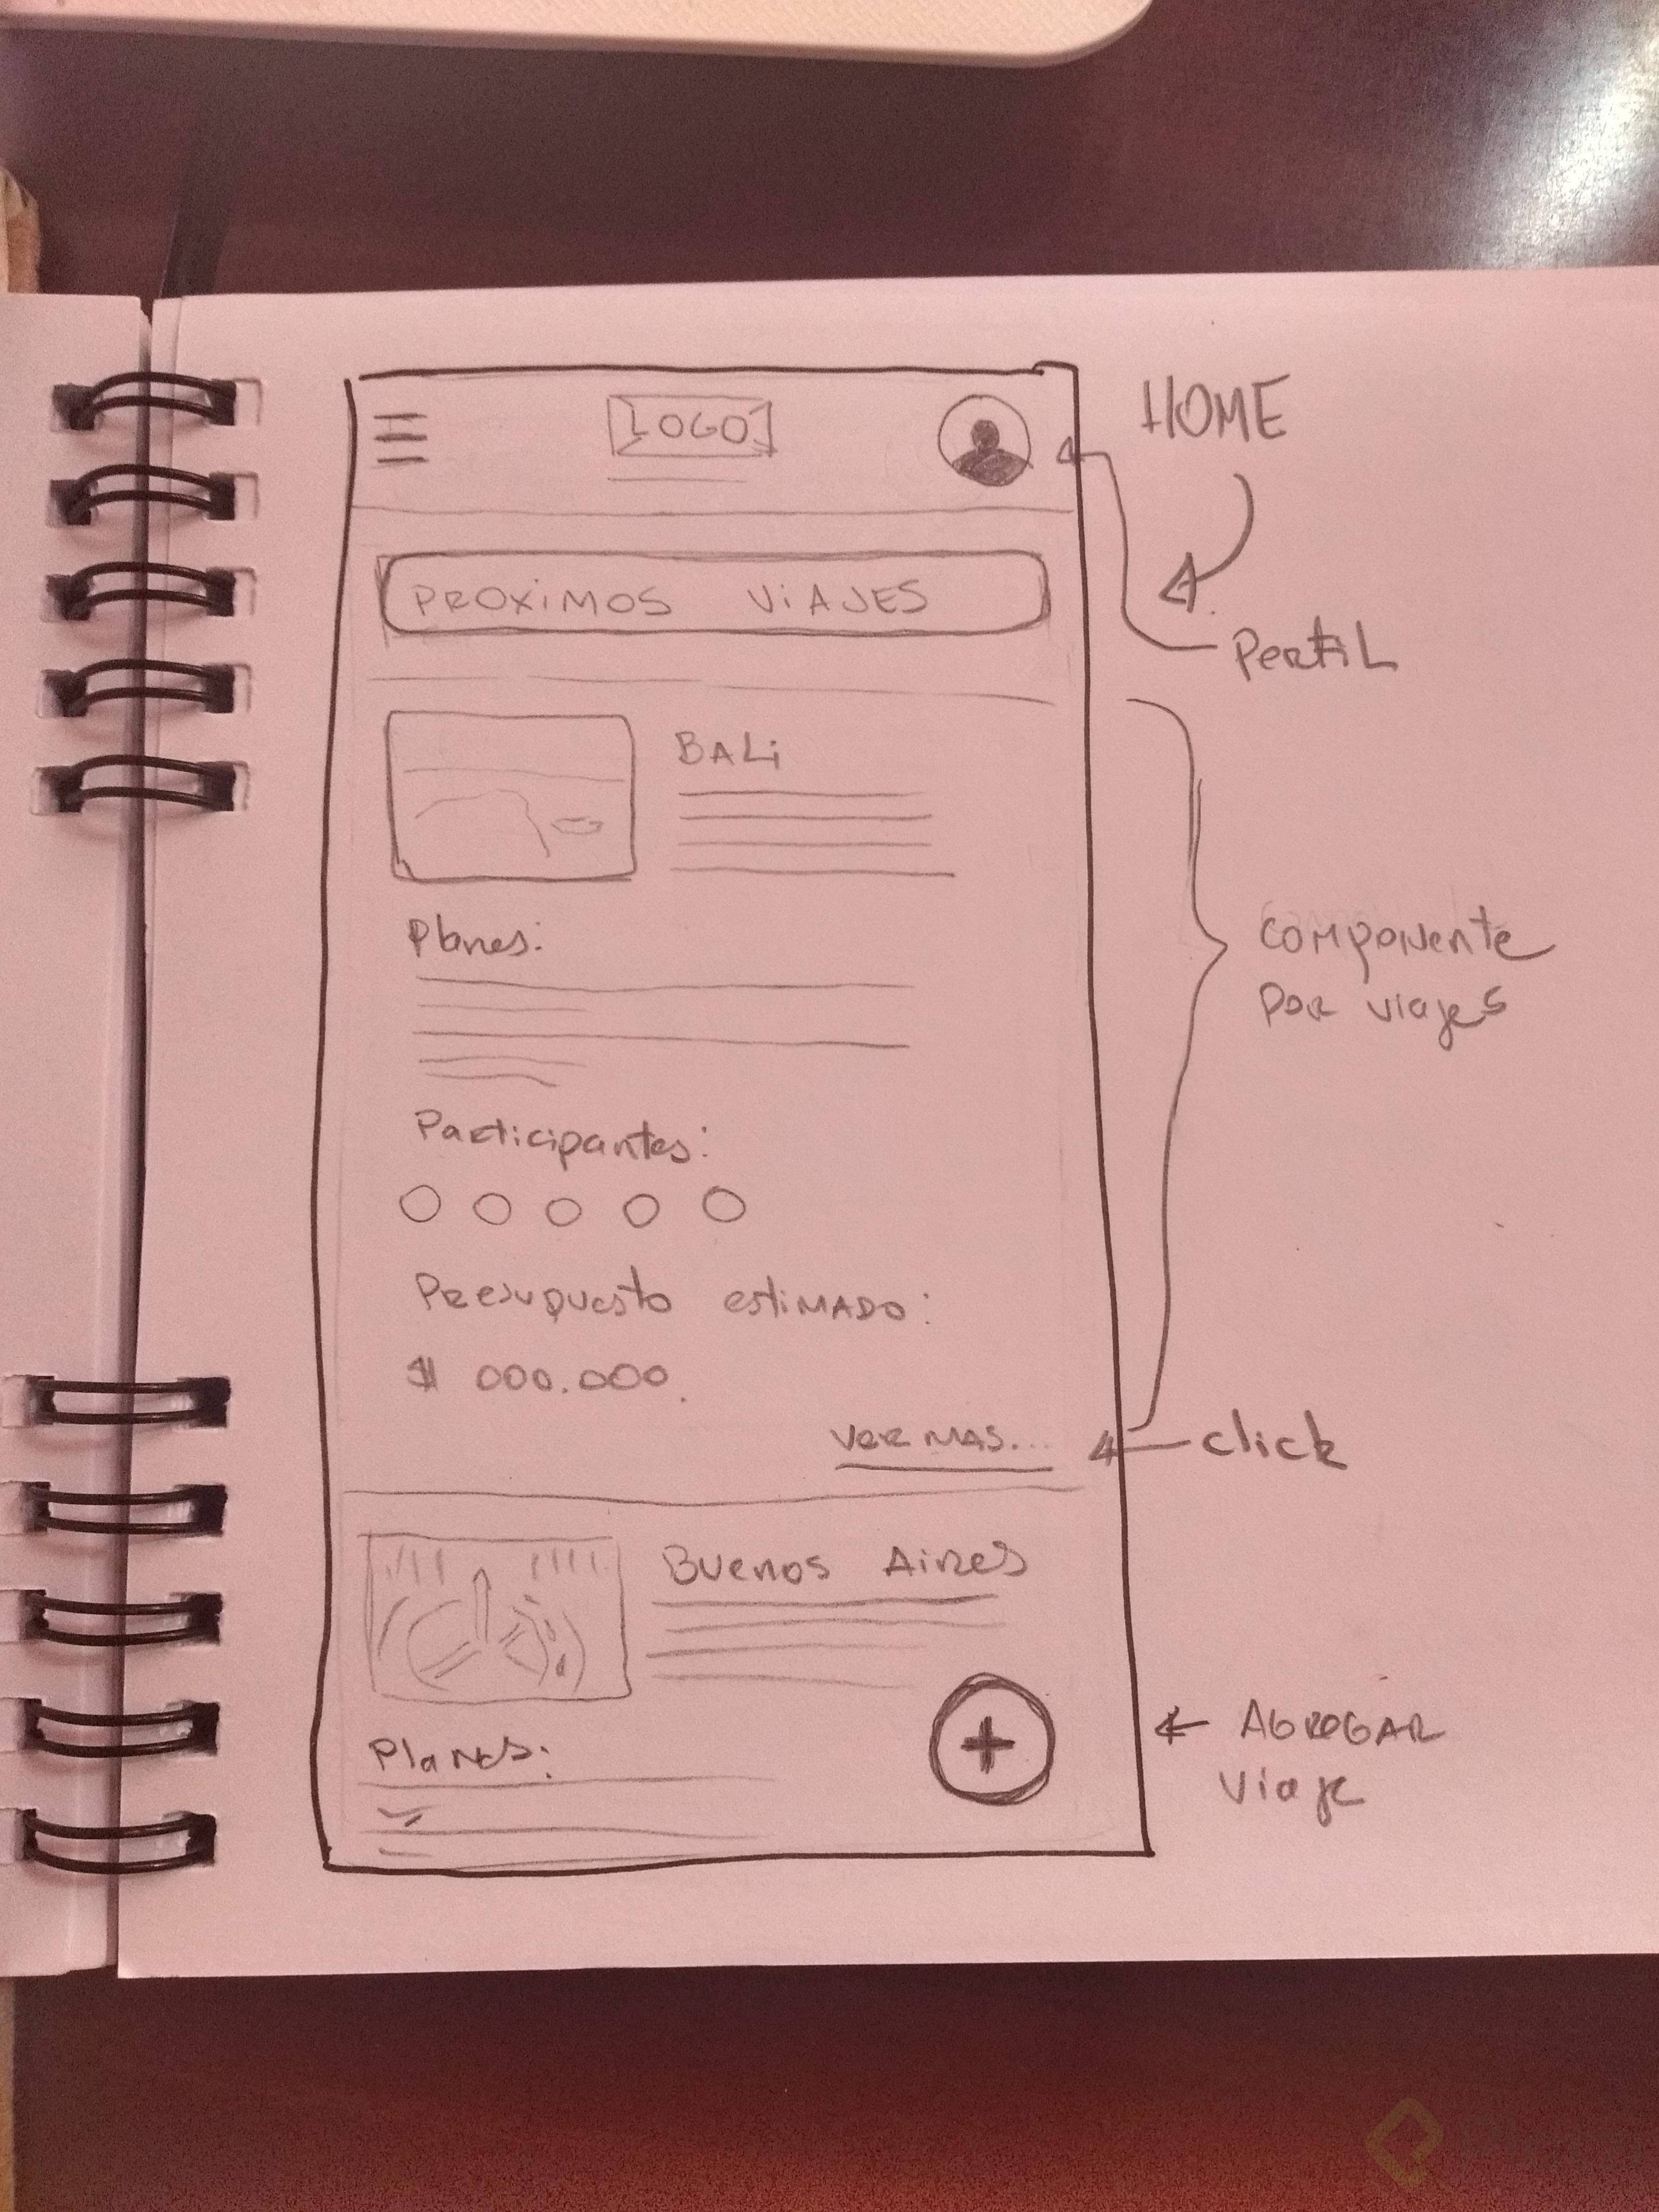 LOGO
HOME
PROXiMOS ViAJES
PerfiL
BALi
Planes:
componente
por viajes
Participantes:
Presupuesto estiMADO:
$ 000.000.
Ver MAS...
click
Buenos Aires
AGREGAR
Viaje
Planes: